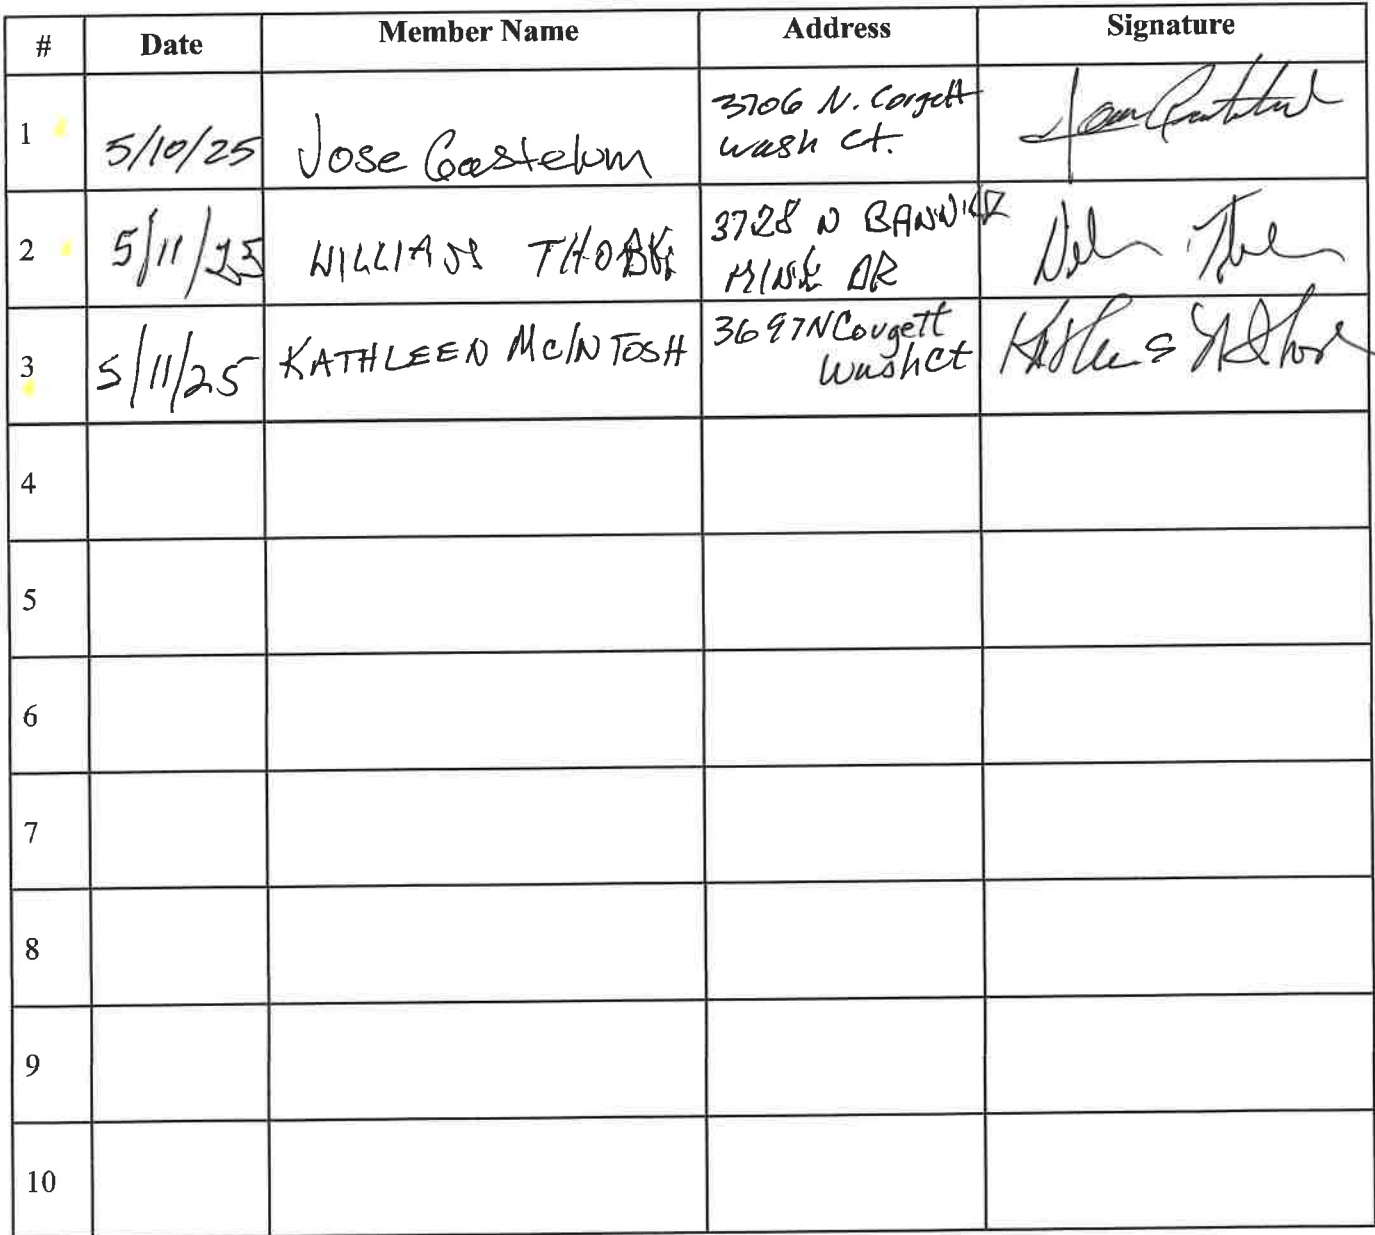 # Date Member Name Address Signature
1 5/10/25 Jose Gastelum 3706 N. Corgett
wash ct.
2 5/11/25 WILLIAM 3728 N BANNER
MINE DR
3 5/11/25 KATHLEEN McINTOSH 3697 N Corgett
Wash Ct
4
5
6
7
8
9
10